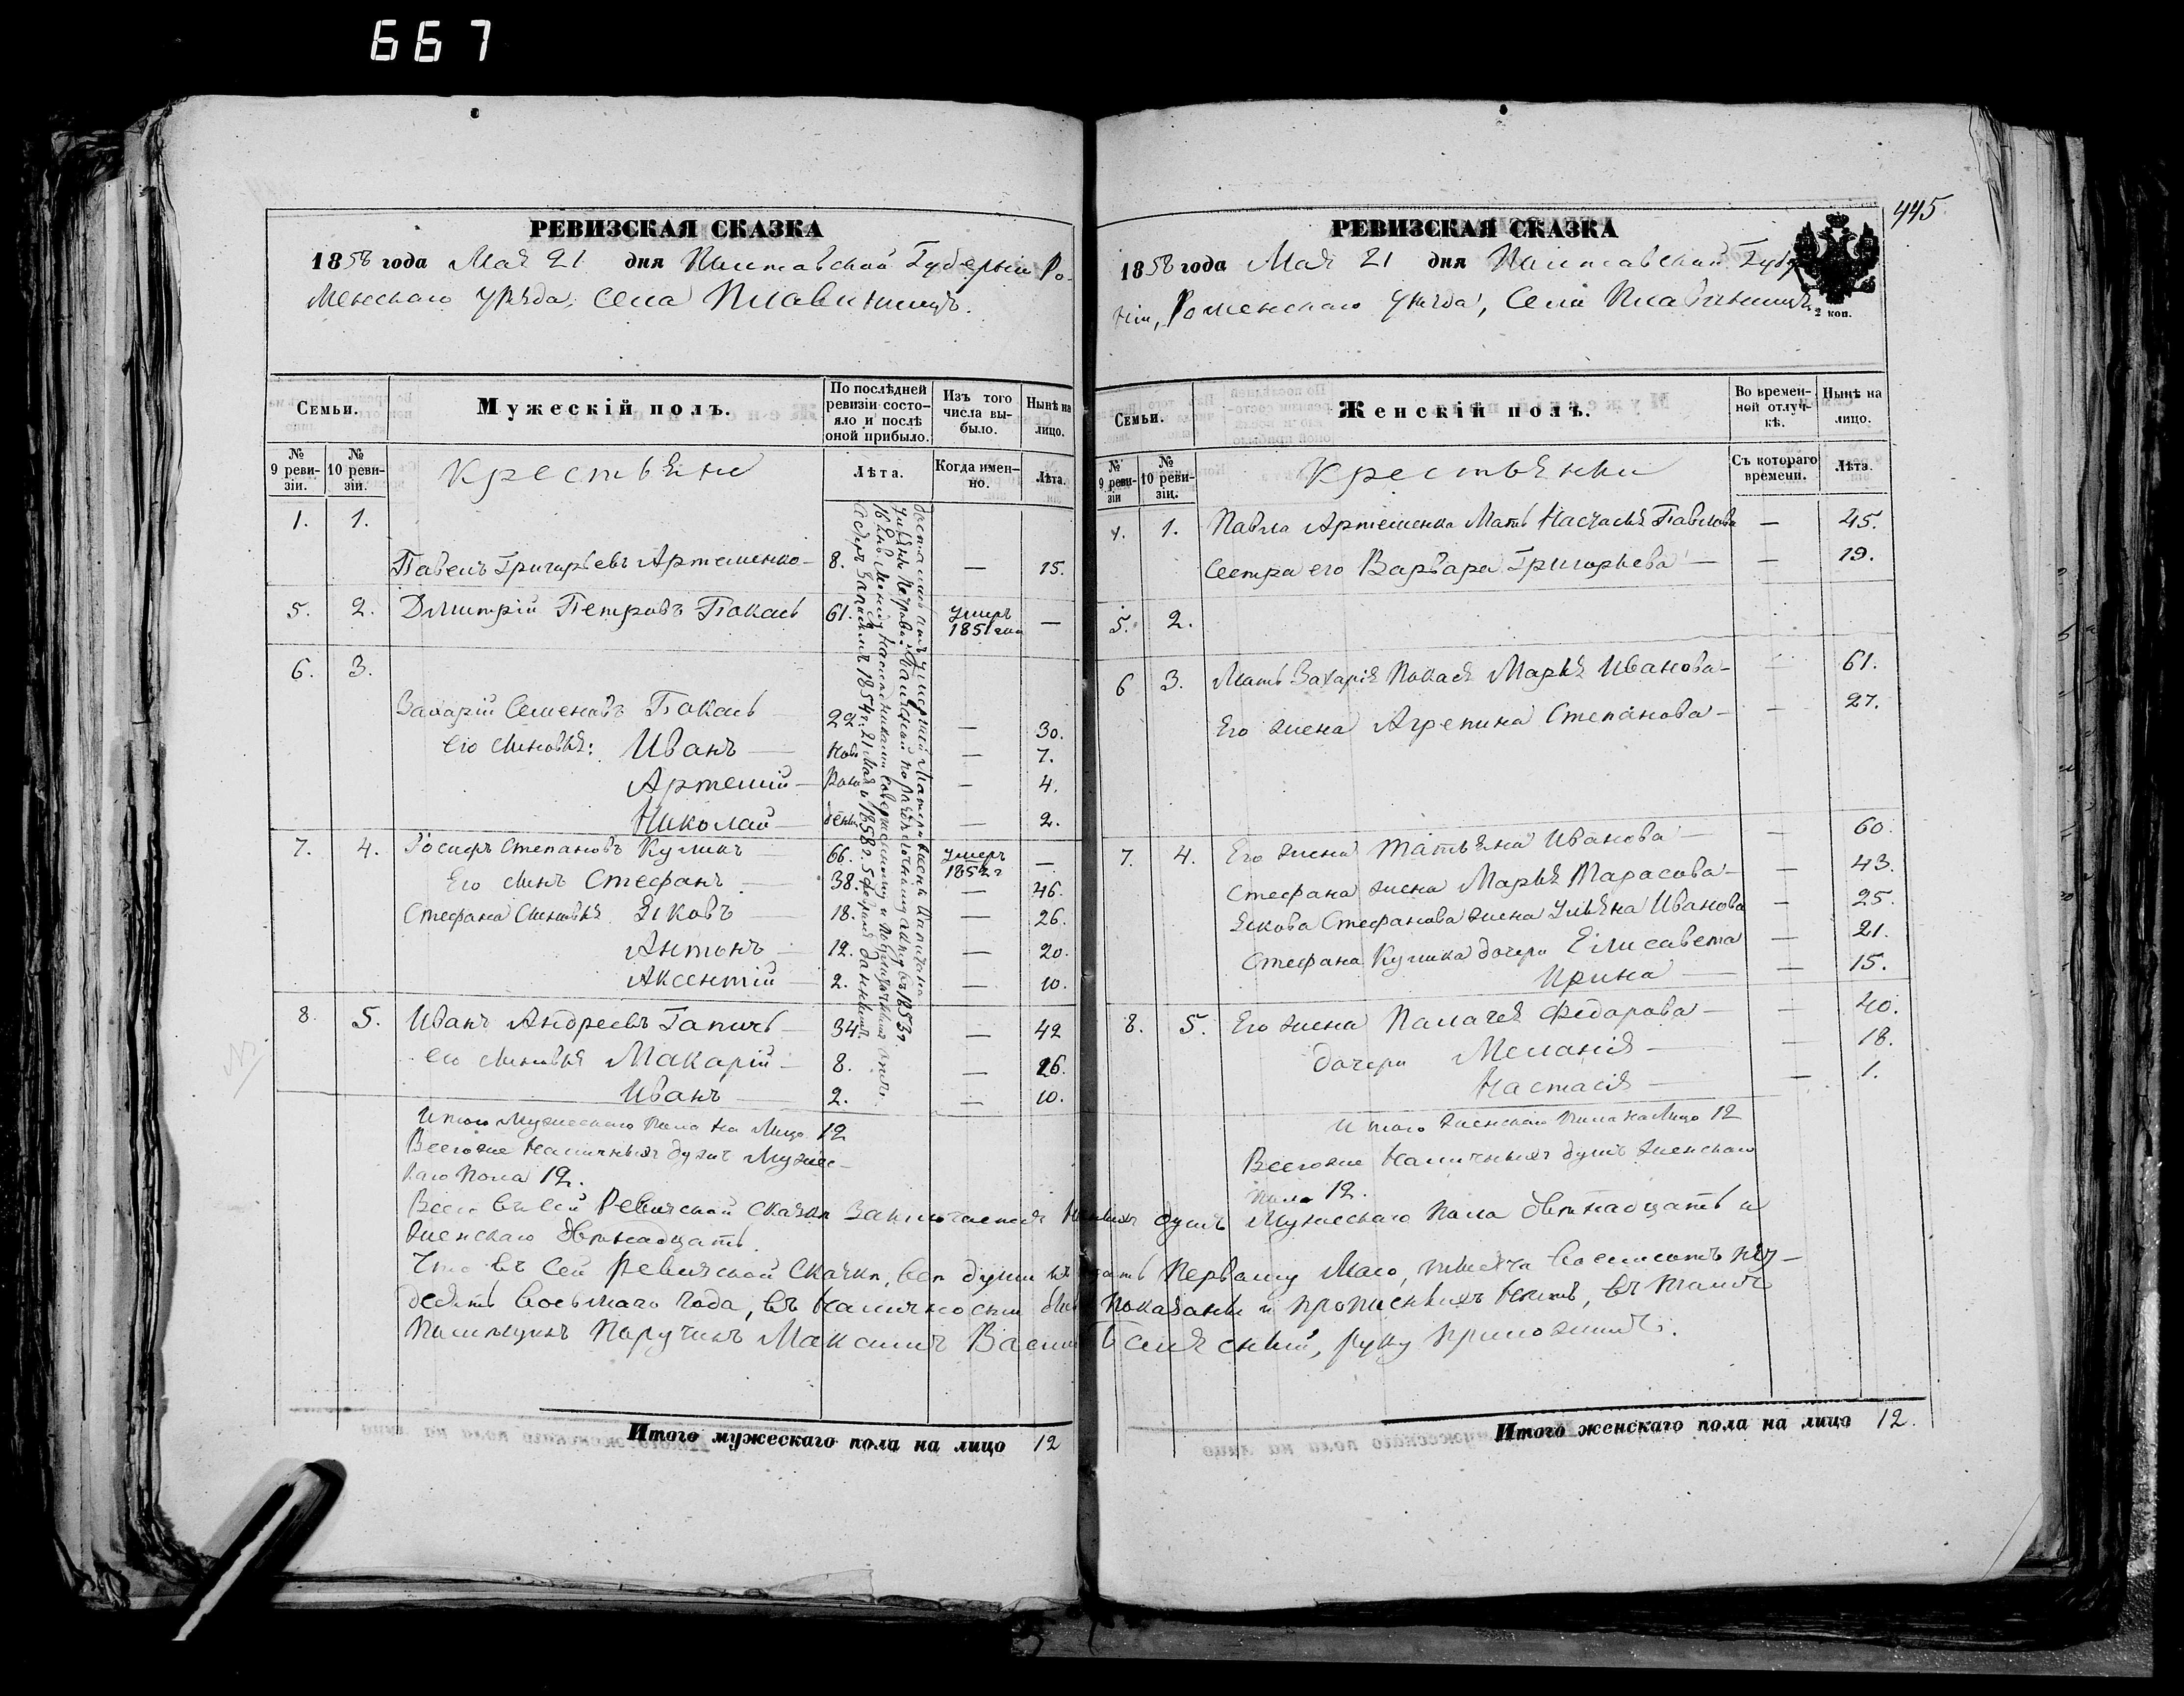 667
РЕВИЗСКАЯ СКАЗКА
1858 года Мая 21 дня Полтавской Губерніи Ро-
менскаго уѣзда, села Плавинищъ.
Семьи.
Мужескій полъ.
По послѣдней ревизіи состо-яло и послѣ оной прибыло.
Изъ того числа вы-было.
Нынѣ на лицо.
№ 9 реви-зіи.
№ 10 реви-зіи.
Крестьяне
Лѣта.
Когда имен-но.
Лѣта.
1. 1.
Павелъ Григорьевъ Артеменко — 8. — 15.
5. 2. Дмитрій Петровъ Покась 61. умеръ 1851 года —
6. 3.
Захарій Семеновъ Покась 22. — 30.
его сыновья: Иванъ — ново — 7.
Артемій — рож — 4.
Николай — денны — 2.
7. 4. Іосифъ Степановъ Куликъ 66. умеръ 1852 г —
Его сынъ Стефанъ — 38. — 46.
Стефана сыновья Яковъ — 18. — 26.
Антонъ — 12. — 20.
Аксентій — 2. — 10.
8. 5. Иванъ Андреевъ Гапичъ — 34. — 42
его сыновья Макарій — 8. — 16.
Иванъ — 2. — 10.
Итого мужескаго пола на лицо 12
Всего же наличныхъ душъ мужес-
каго пола 12.
Итого мужескаго пола на лицо 12
445
РЕВИЗСКАЯ СКАЗКА
1858 года Мая 21 дня Полтавской Губер
ніи, Роменскаго уѣзда, Села Плавинищъ
2 коп.
Семьи.
Женскій полъ.
Во времен-ной отлуч-кѣ.
Нынѣ на лицо.
№ 9 реви-зіи
№ 10 реви-зіи.
Крестьянки
Съ котораго времени.
Лѣта.
1. 1. Павла Артеменка Мать Настасья Павлова — 45.
Сестра его Варвара Григорьева — — 19.
5. 2.
6 3. Мать Захарія Покася Марья Иванова — — 61.
Его жена Агрепина Степанова — — 27.
7. 4. Его жена Татьяна Иванова — — 60.
Стефана жена Марья Тарасова — — 43.
Якова Стефанова жена Ульяна Иванова — 25.
Стефана Кулика дочери Елисавета — 21.
Ирина — — 15.
8. 5. Его жена Палагея Федорова — — 40.
дочери Меланія — — 18.
Настасія — — 1.
Итого женскаго пола на лицо 12
Всего же наличныхъ душъ женскаго
пола 12.
Всего въ сей Ревизской сказкѣ заключается душъ мужескаго пола двѣнадцать и
женскаго двѣнадцать.
Что въ сей Ревизской Сказкѣ, всѣ души къ первому Маю, тысяча восемьсотъ пять-
десятъ восьмаго года, въ наличности показаны и прописныхъ нѣтъ, въ томъ
Помѣщикъ Поручикъ Максимъ руку приложилъ.
Итого женскаго пола на лицо 12.